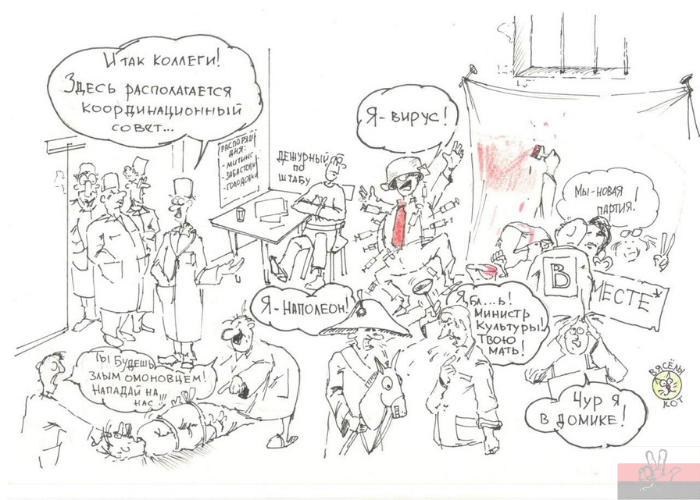 Итак коллеги!
Здесь располагается
координационный
совет...
РАСПОРЯД
ДНЯ:
- МИТИНГ
- ЗАБАСТОВКА
- ГОЛОДОВКА
ДЕЖУРНЫЙ
ПО
ШТАБУ
Я - ВИРУС!
Мы - НОВАЯ
ПАРТИЯ!
В
МЕСТЕ
Я - НАПОЛЕОН!
Я, бл...ь!
МИНИСТР
КУЛЬТУРЫ
ТВОЮ
МАТЬ!
Ты будешь
злым омоновцем!
Нападай на
нас...!!!
ЧУР Я
В ДОМИКЕ!
ВЯСЁЛЫ
КОТ